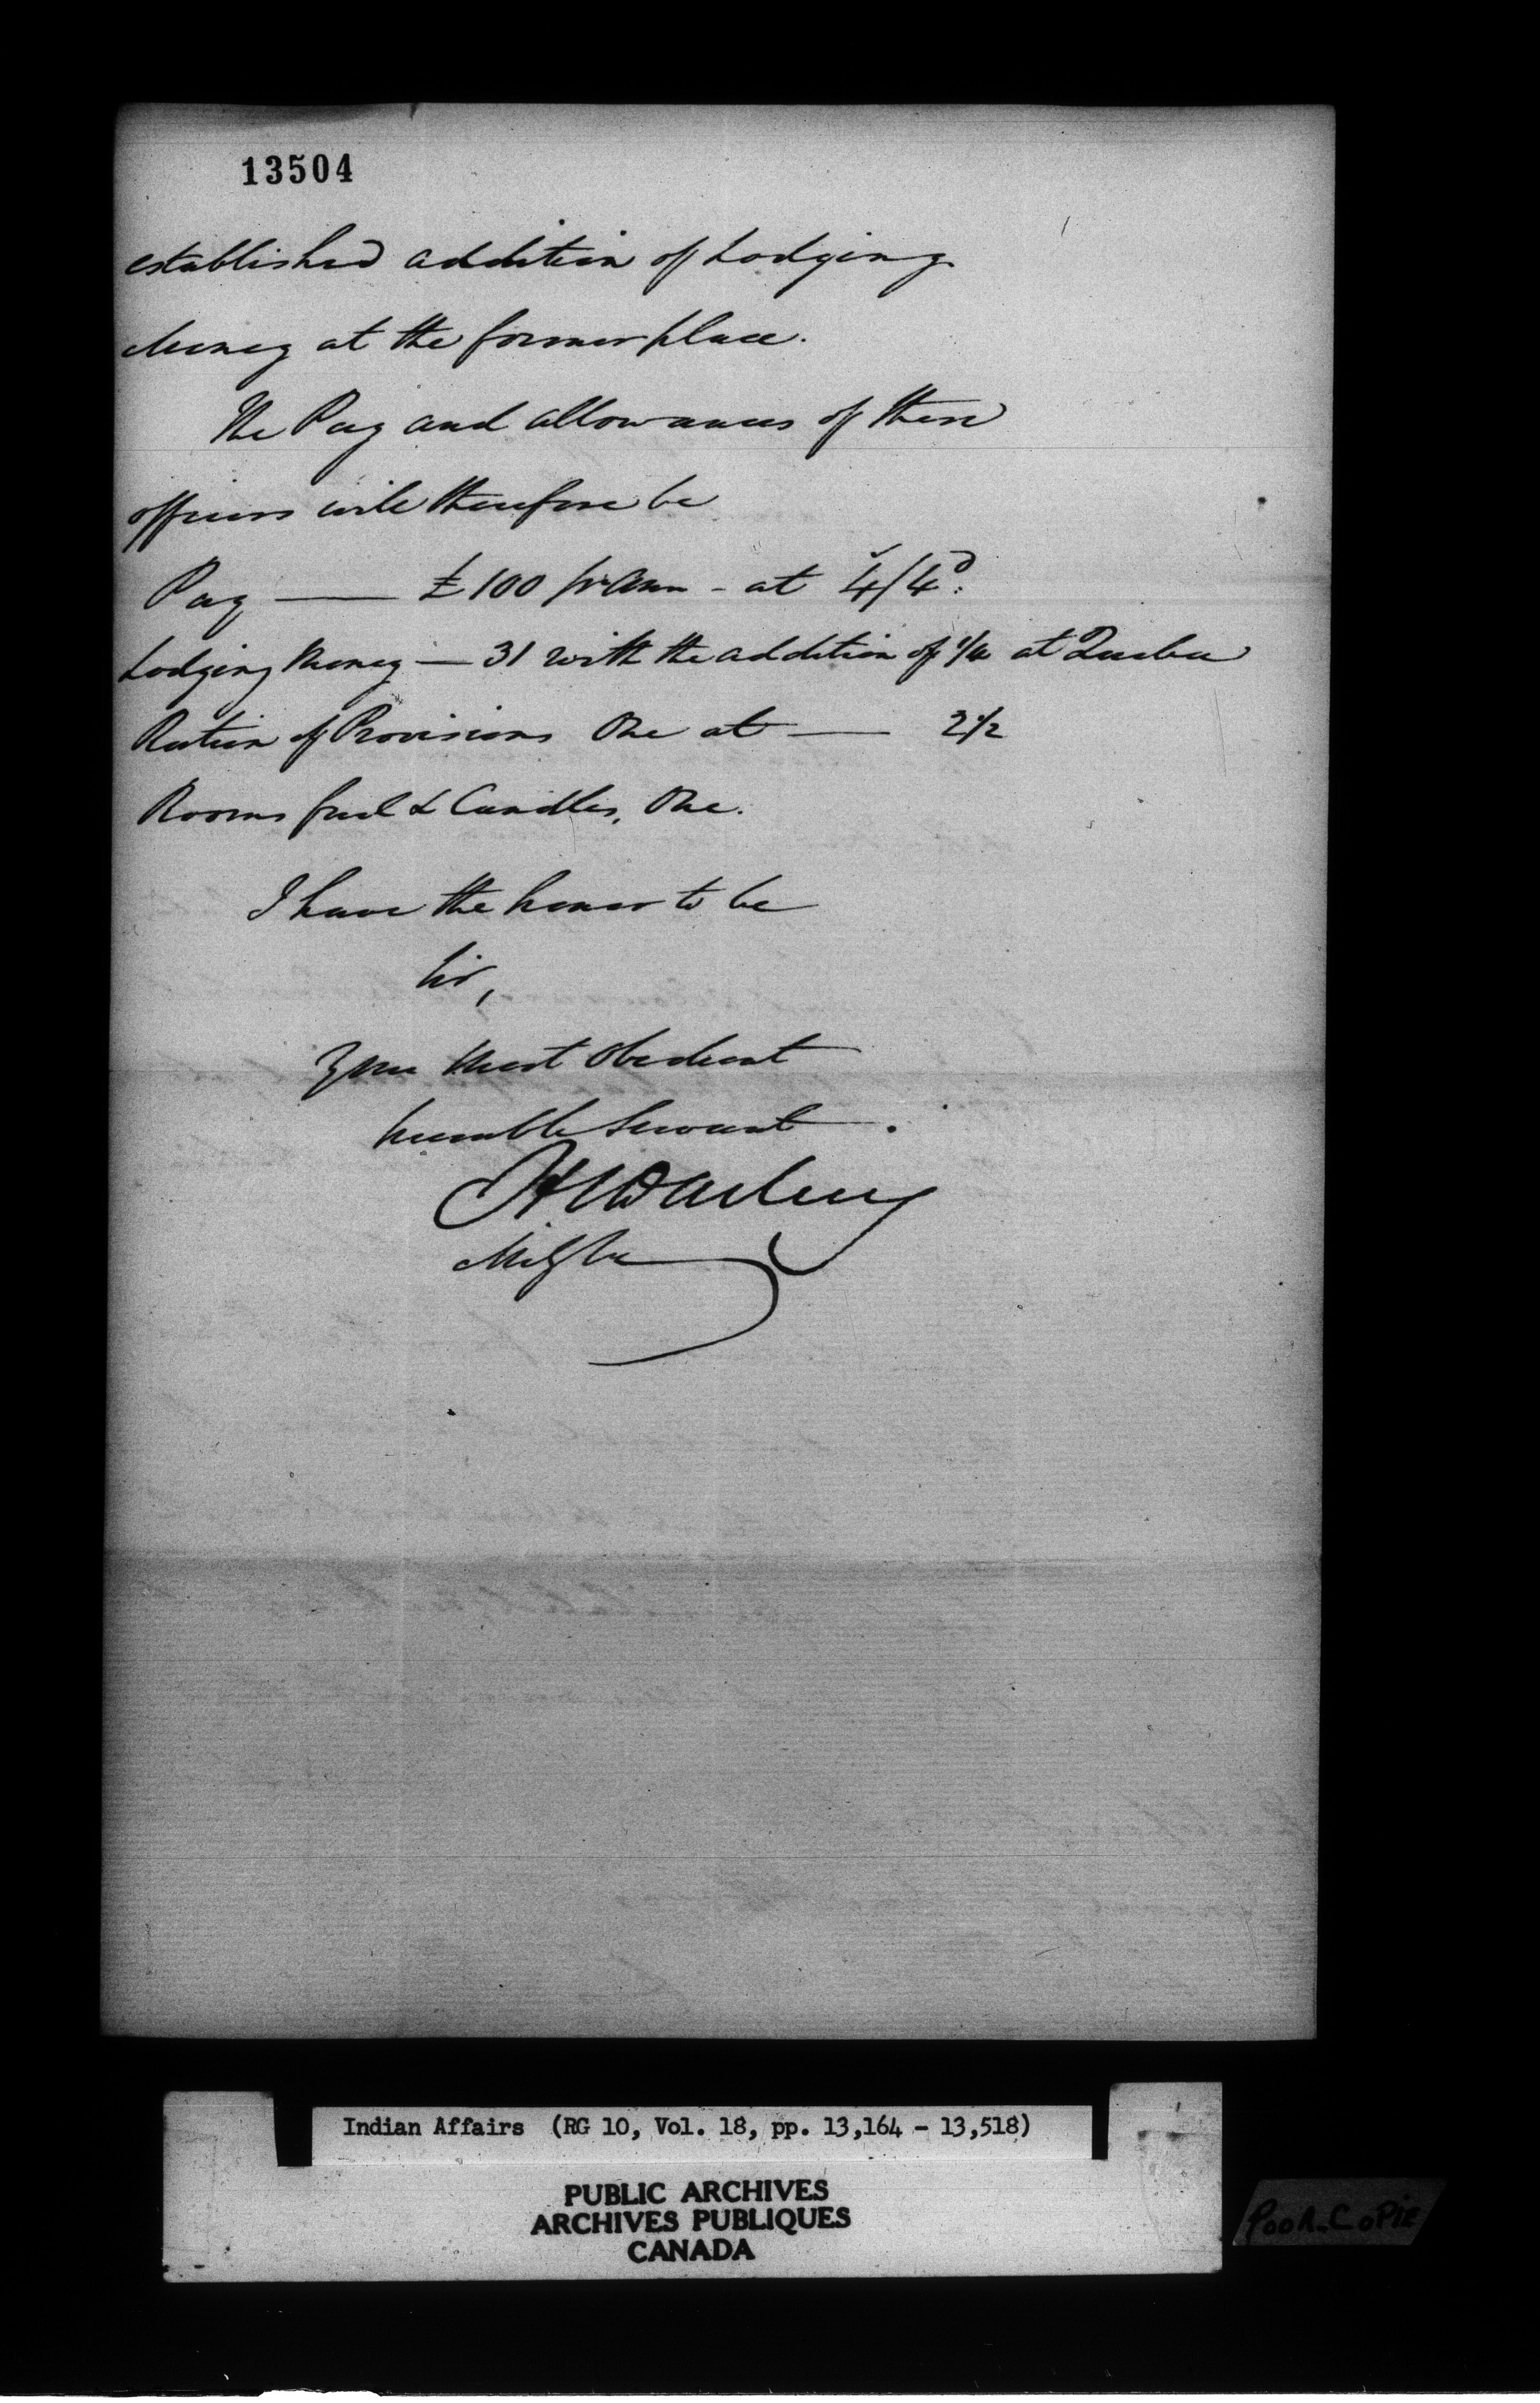 13504
established addition of Lodging
Money at the former place.
The Pay and allowances of these
officers will therefore be
Pay — £100 pr Ann - at 4/4d.
Lodging Money — 31 with the addition of 1/4 at Quebec
Ration of Provisions One at — 2½
Rooms fuel & Candles, One.
I have the honor to be
Sir,
Your Most Obedient
humble Servant.
HCDarling
Mily
Indian Affairs (RG 10, Vol. 18, pp. 13,164 - 13,518)
PUBLIC ARCHIVES
ARCHIVES PUBLIQUES
CANADA
POOR-COPIE